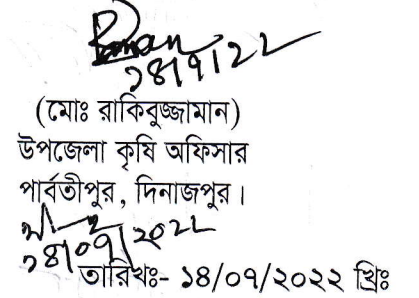 ১৪/৭/২২
(মোঃ রাকিবুজ্জামান)
উপজেলা কৃষি অফিসার
পার্বতীপুর, দিনাজপুর।
১৪/০৭/২০২২
তারিখঃ- ১৪/০৭/২০২২ খ্রিঃ